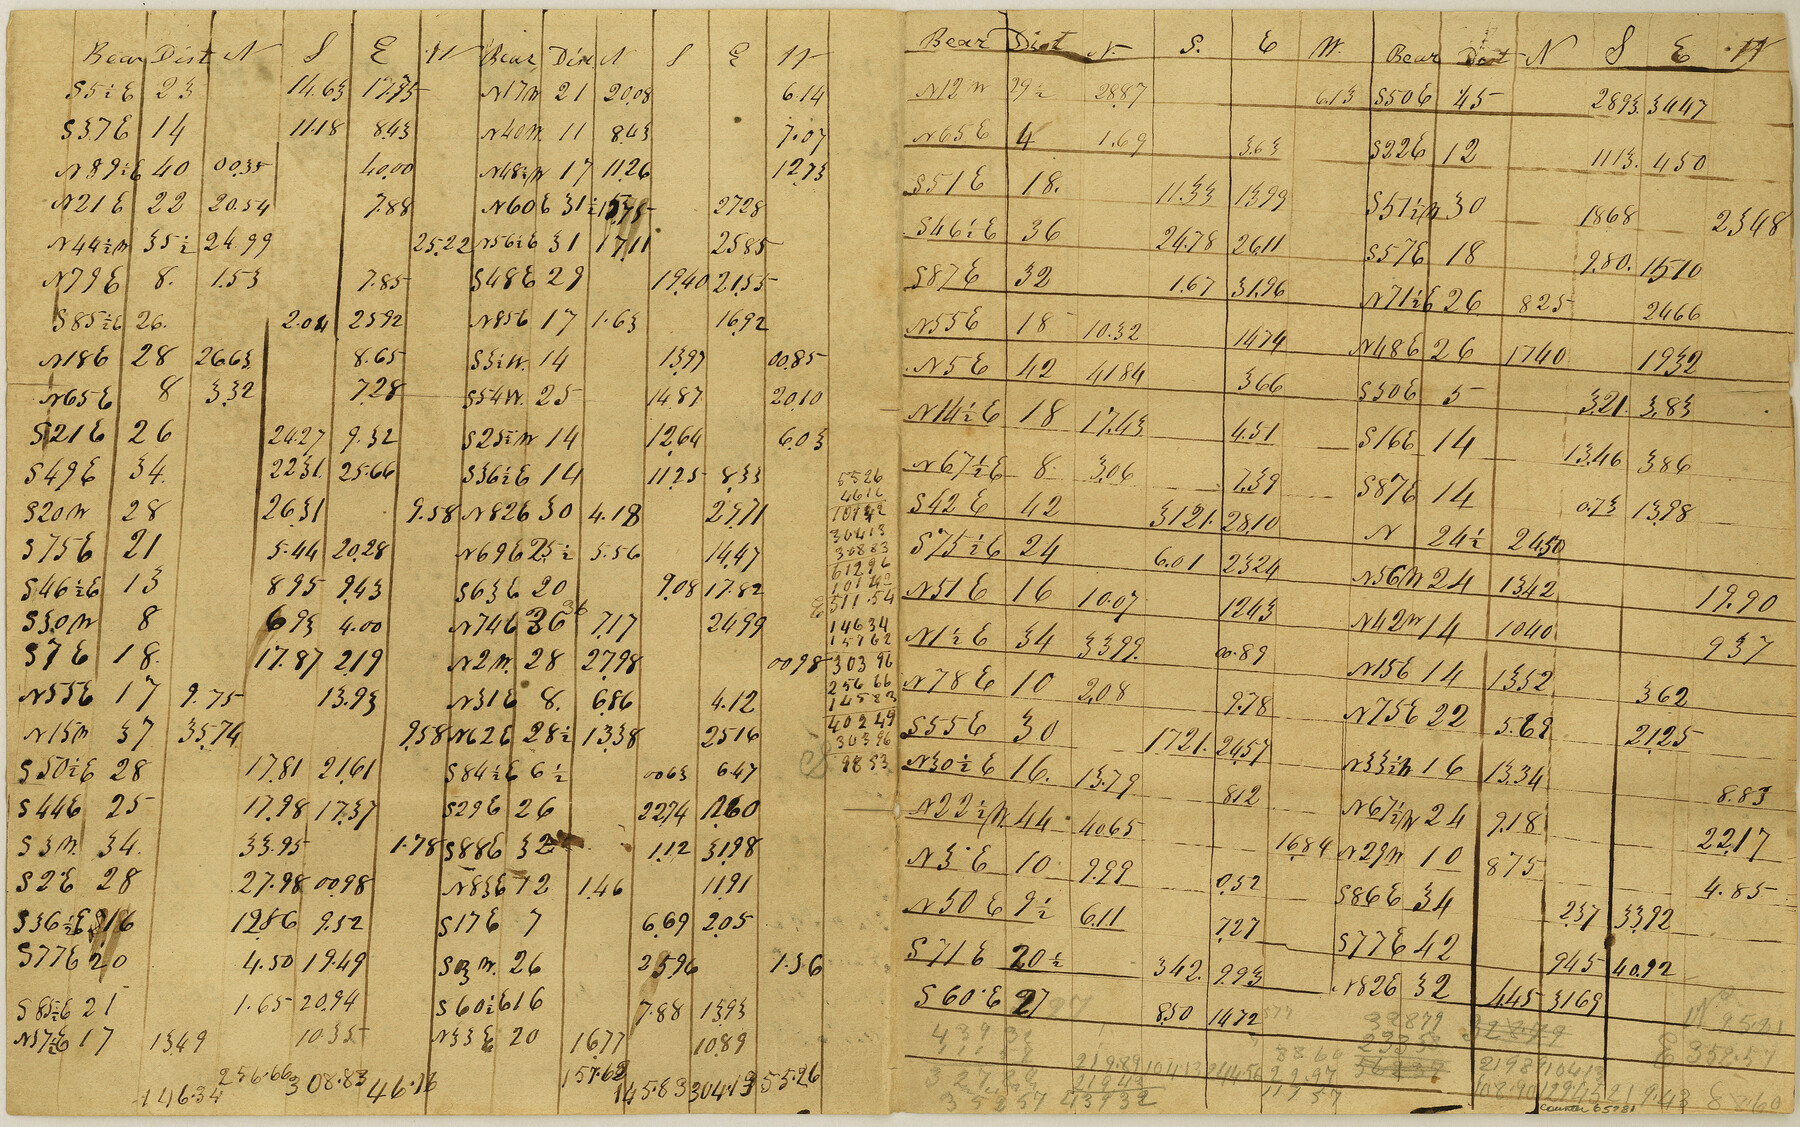 Bear Dist N S E W Bear Dist N S E W
S5½E 23 14.63 17.75 N17W 21 20.08 6.14
S37E 14 11.18 8.43 N40W 11 8.43 7.07
N89½E 40 00.35 40.00 N48½W 17 11.26 12.73
N21E 22 20.54 7.88 N60E 31½ 15.75 27.28
N44½W 35½ 24.99 25.22 N56½E 31 17.11 25.85
N79E 8. 1.53 7.85 S48E 29 19.40 21.55
S85½E 26. 2.04 25.92 N85E 17 1.63 16.92
N18E 28 26.63 8.65 S3½W. 14 13.97 00.85
N65E 8 3.32 7.28 S54W. 25 14.87 20.10
S21E 26 24.27 9.32 S25½W 14 12.64 6.03
S49E 34. 22.31 25.66 S36½E 14 11.25 8.33
S20W 28 26.31 9.58 N82E 30 4.18 29.71
S75E 21 5.44 20.28 N69E 25½ 5.56 14.47
S46½E 13 8.95 9.43 S63E 20 9.08 17.82
S30W 8 6.93 4.00 N74E 26 7.17 24.99
S7E 18. 17.87 2.19 N2W. 28 27.98 00.98
N55E 17 9.75 13.93 N31E 8. 6.86 4.12
N15W 37 35.74 9.58 N62E 28½ 13.38 25.16
S50½E 28 17.81 21.61 S84½E 6½ 00.63 6.47
S44E 25 17.98 17.37 S29E 26 22.74 12.60
S3W. 34. 33.95 1.78 S88E 32 1.12 31.98
S2E 28 27.98 00.98 N83E 12 1.46 11.91
S36½E 16 12.86 9.52 S17E 7 6.69 2.05
S77E 20 4.50 19.49 S3W. 26 25.96 1.36
S85½E 21 1.65 20.94 S60½E 16 7.88 13.93
N37½E 17 13.49 10.35 N33E 20 16.77 10.89
146.34 256.66 308.83 46.16 157.62 145.83 304.13 55.26
5526
4616
10142
30413
30883
61296
10142
E 511.54
14634
15762
30396
25666
14583
40249
30396
S 9853
Bear Dist N. S. E W. Bear Dist N S E W
N12W 29½ 28.87 6.13 S50E 45 28.93 34.47
N65E 4 1.69 3.63 S22E 12 11.13. 4.50
S51E 18. 11.33 13.99 S51½W 30 18.68 23.48
S46½E 36 24.78 26.11 S57E 18 9.80. 15.10
S87E 32 1.67 31.96 N71½E 26 8.25 24.66
N55E 18 10.32 14.74 N48E 26 17.40 19.32
N5E 42 41.84 3.66 S50E 5 3.21. 3.83
N14½E 18 17.43 4.51 S16E 14 13.46 3.86
N67½E 8. 3.06 7.39 S87E 14 0.73 13.98
S42E 42 31.21. 28.10 N 24½ 24.50
S75½E 24 6.01 23.24 N56W 24 13.42 19.90
N51E 16 10.07 12.43 N42W 14 10.40 9.37
N1½E 34 33.99. 00.89 N15E 14 13.52 3.62
N78E 10 2.08 9.78 N75E 22 5.69 21.25
S55E 30 17.21. 24.57 N33½W 16 13.34 8.83
N30½E 16. 13.79 8.12 N67½W 24 9.18 22.17
N22½W 44 40.65 16.84 N29W 10 8.75 4.85
N3E 10 9.99 0.52 S86E 34 2.37 33.92
N50E 9½ 6.11 7.27 S77E 42 9.45 40.92
S71E 20½ 3.42. 9.93 N82E 32 4.45 31.69
S60E 27 8.50 14.72
N 95.91
E 352.57
43932
35257 43932
21943
counter 65781